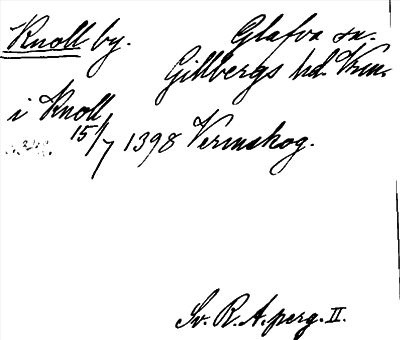 Knoll by. Glafva sn.
Gillbergs hd. Vrm.
i Knoll
15/7 1398 Vermskog.
Sv. R. A. perg. II.